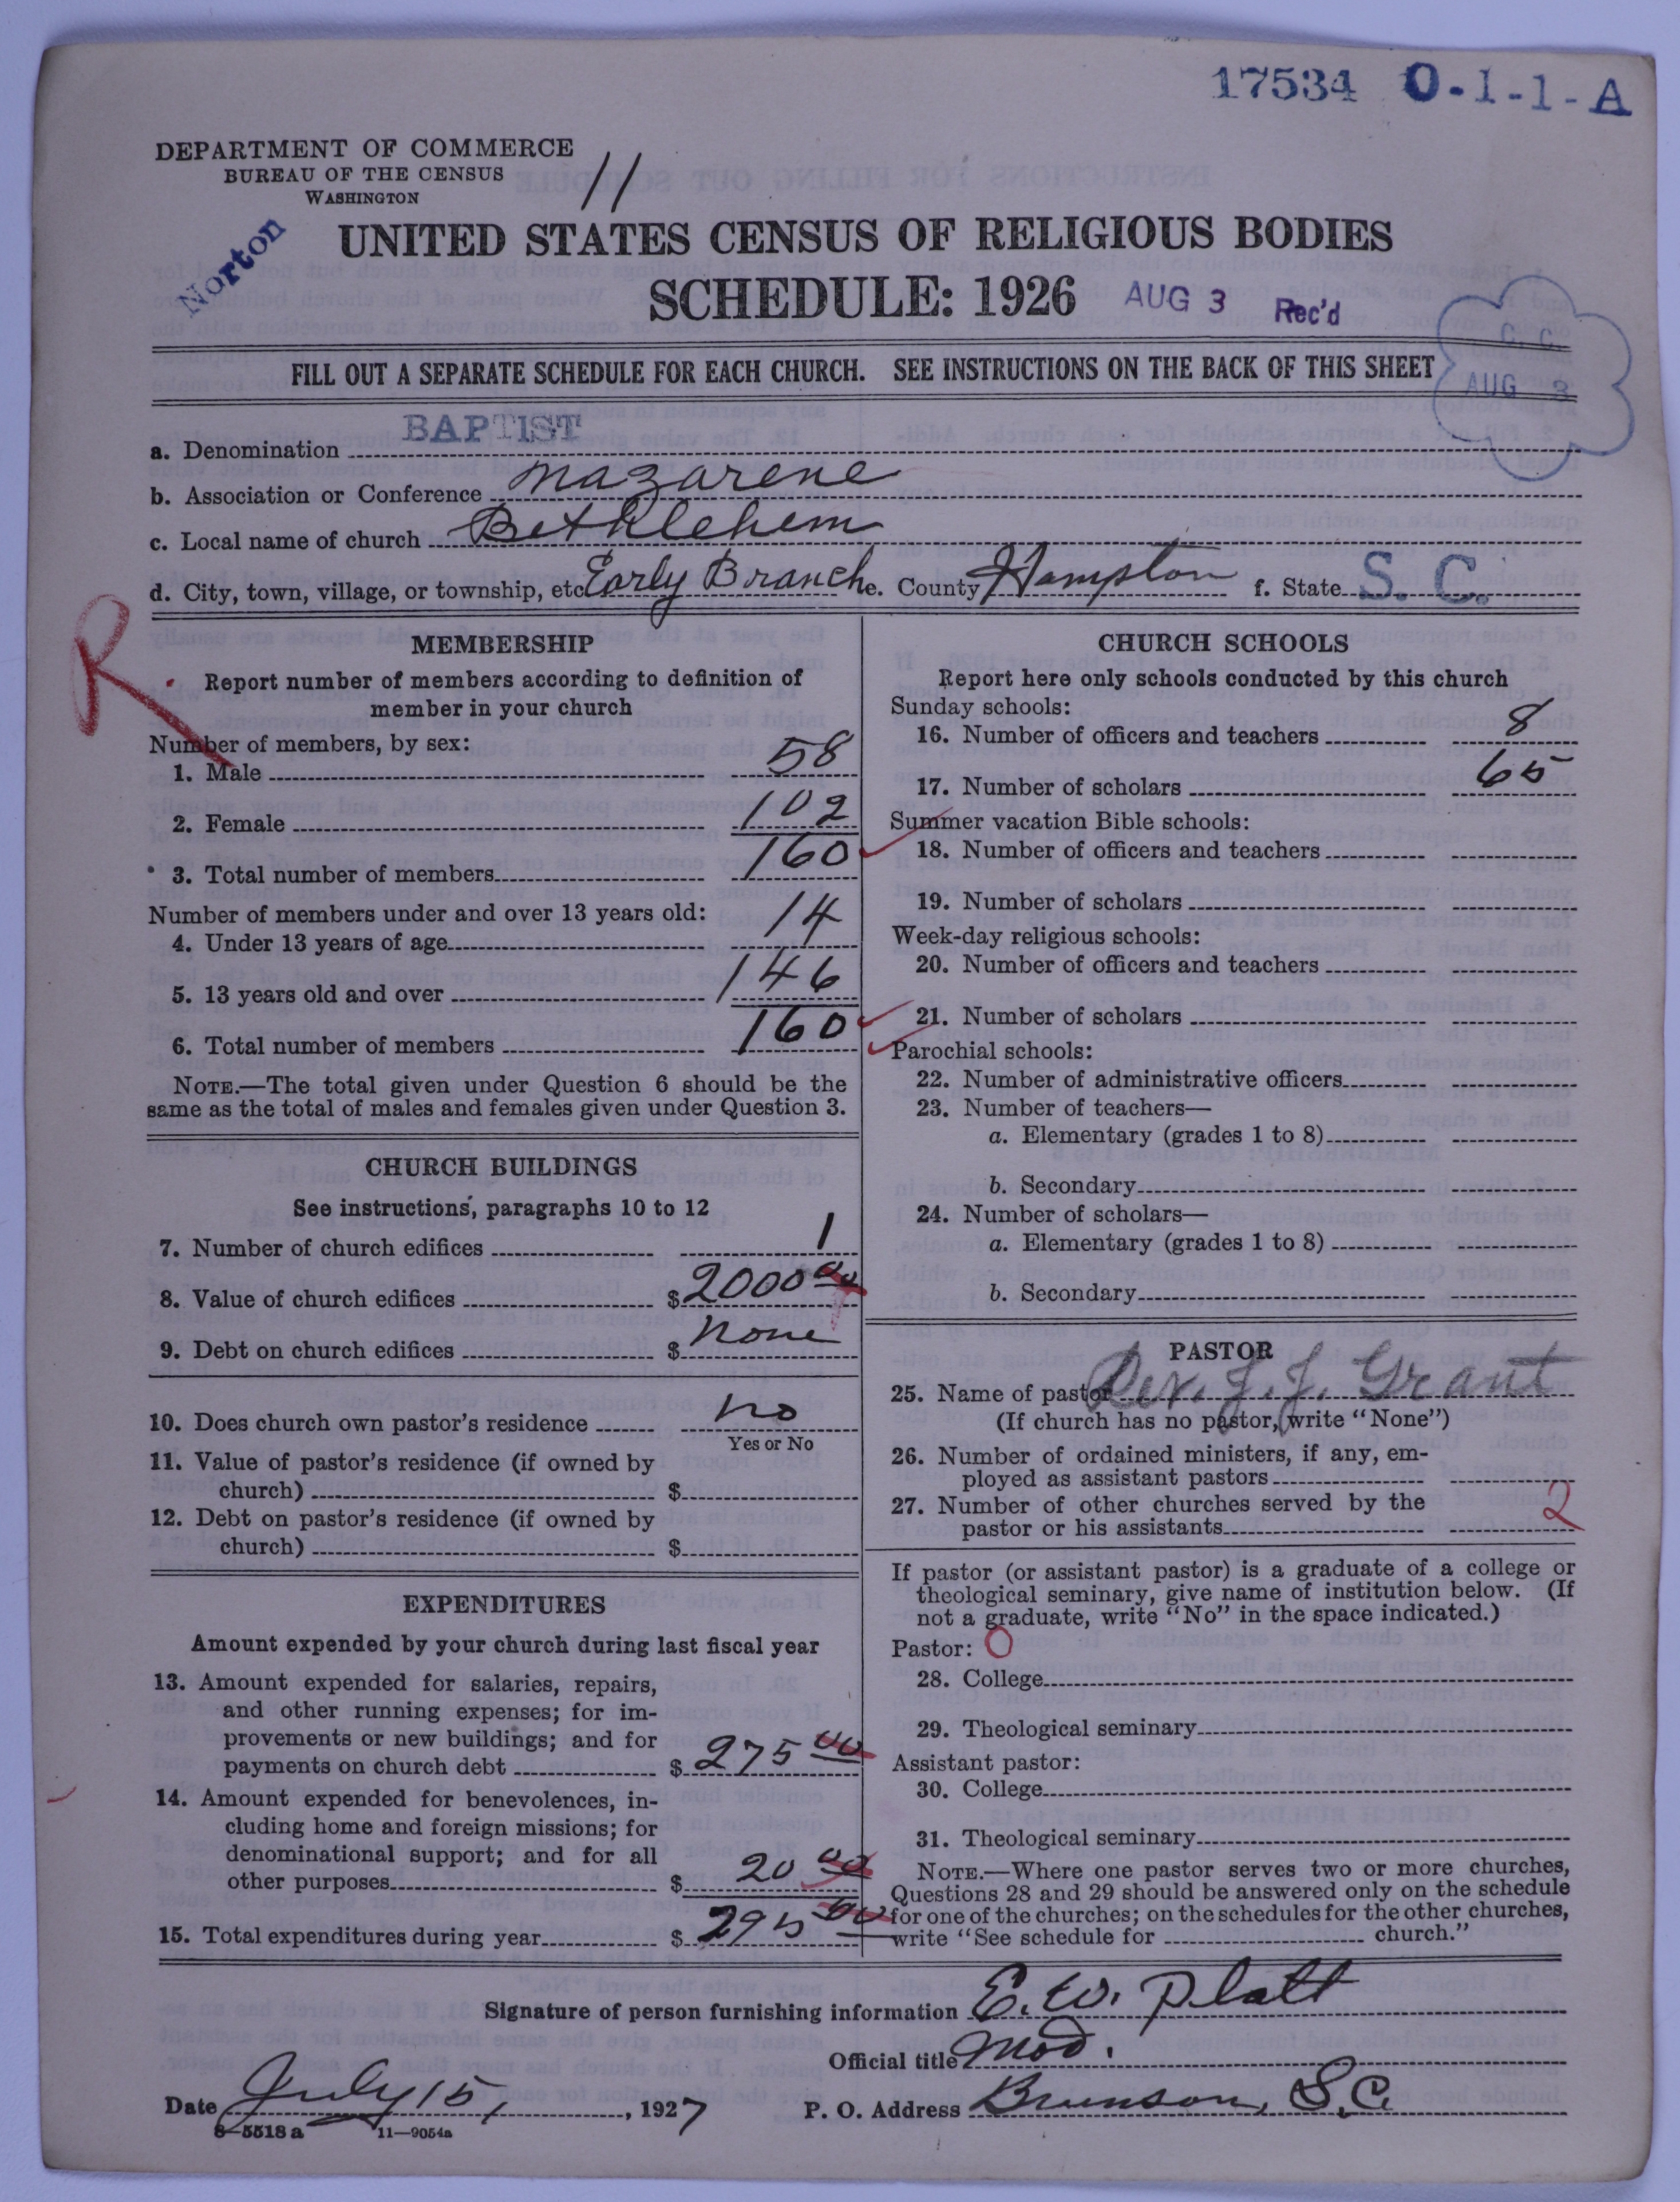 17534 O-1-1-A
DEPARTMENT OF COMMERCE
BUREAU OF THE CENSUS
WASHINGTON
11
Norton
UNITED STATES CENSUS OF RELIGIOUS BODIES
SCHEDULE: 1926
AUG 3 Rec'd
C. C.
AUG 3
FILL OUT A SEPARATE SCHEDULE FOR EACH CHURCH. SEE INSTRUCTIONS ON THE BACK OF THIS SHEET
a. Denomination BAPTIST
b. Association or Conference Nazarene
c. Local name of church Bethlehem
d. City, town, village, or township, etc Early Branch e. County Hampton f. State S. C.
R
MEMBERSHIP
Report number of members according to definition of
member in your church
Number of members, by sex:
1. Male 58
2. Female 102
3. Total number of members 160
Number of members under and over 13 years old:
4. Under 13 years of age 14
5. 13 years old and over 146
6. Total number of members 160
NOTE.—The total given under Question 6 should be the
same as the total of males and females given under Question 3.
CHURCH BUILDINGS
See instructions, paragraphs 10 to 12
7. Number of church edifices 1
8. Value of church edifices $ 2000 00
9. Debt on church edifices $ none
10. Does church own pastor's residence no
Yes or No
11. Value of pastor's residence (if owned by
church) $
12. Debt on pastor's residence (if owned by
church) $
EXPENDITURES
Amount expended by your church during last fiscal year
13. Amount expended for salaries, repairs,
and other running expenses; for im-
provements or new buildings; and for
payments on church debt $ 275 00
14. Amount expended for benevolences, in-
cluding home and foreign missions; for
denominational support; and for all
other purposes $ 20 00
15. Total expenditures during year $ 295 00
CHURCH SCHOOLS
Report here only schools conducted by this church
Sunday schools:
16. Number of officers and teachers 8
17. Number of scholars 65
Summer vacation Bible schools:
18. Number of officers and teachers
19. Number of scholars
Week-day religious schools:
20. Number of officers and teachers
21. Number of scholars
Parochial schools:
22. Number of administrative officers
23. Number of teachers—
a. Elementary (grades 1 to 8)
b. Secondary
24. Number of scholars—
a. Elementary (grades 1 to 8)
b. Secondary
PASTOR
25. Name of pastor Rev. J. J. Grant
(If church has no pastor, write "None")
26. Number of ordained ministers, if any, em-
ployed as assistant pastors
27. Number of other churches served by the
pastor or his assistants 2
If pastor (or assistant pastor) is a graduate of a college or
theological seminary, give name of institution below. (If
not a graduate, write "No" in the space indicated.)
Pastor: O
28. College
29. Theological seminary
Assistant pastor:
30. College
31. Theological seminary
NOTE.—Where one pastor serves two or more churches,
Questions 28 and 29 should be answered only on the schedule
for one of the churches; on the schedules for the other churches,
write "See schedule for church."
Signature of person furnishing information E. W. Platt
Official title Mod.
Date July 15, 1927 P. O. Address Brunson, S.C.
8—5518 a 11—9054a